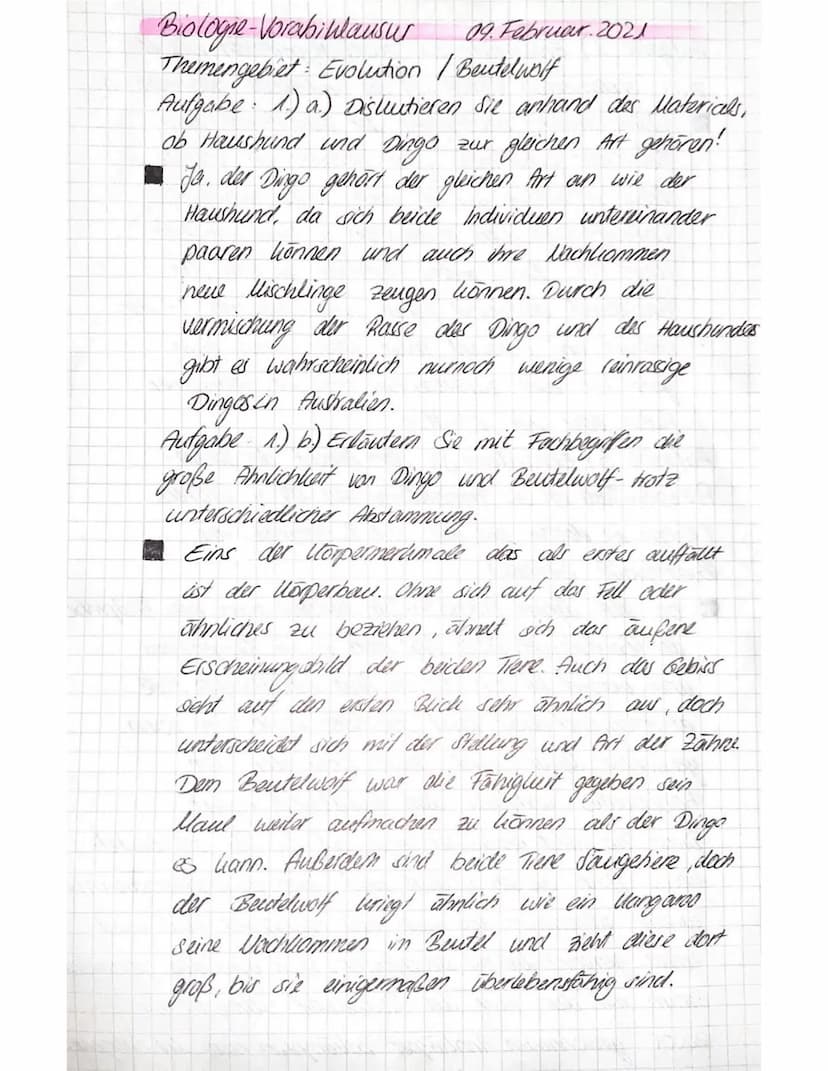 Biologie-Vorabiklausur 09. Februar. 2021
Themengebiet: Evolution / Beutelwolf
Aufgabe: 1.) a.) Diskutieren Sie anhand des Materials,
ob Haushund und Dingo zur gleichen Art gehören!
Ja, der Dingo gehört der gleichen Art an wie der
Haushund, da sich beide Individuen untereinander
paaren können und auch ihre Nachkommen
neue Mischlinge zeugen können. Durch die
vermischung der Rasse des Dingo und des Haushundes
gibt es wahrscheinlich nurnoch wenige reinrassige
Dingos in Australien.
Aufgabe 1.) b.) Erläutern Sie mit Fachbegriffen die
große Ähnlichkeit von Dingo und Beutelwolf - trotz
unterschiedlicher Abstammung.
Eins der Körpermerkmale das als erstes auffällt
ist der Körperbau. Ohne sich auf das Fell oder
ähnliches zu beziehen, ähnelt sich das äußere
Erscheinungsbild der beiden Tiere. Auch das Gebiss
sieht auf den ersten Blick sehr ähnlich aus, doch
unterscheidet sich mit der Stellung und Art der Zähne.
Dem Beutelwolf war die Fähigkeit gegeben sein
Maul weiter aufmachen zu können als der Dingo
es kann. Außerdem sind beide Tiere Säugetiere, doch
der Beutelwolf kriegt ähnlich wie ein Kangaroo
seine Nachkommen in Beutel und zieht diese dort
groß, bis sie einigermaßen überlebensfähig sind.